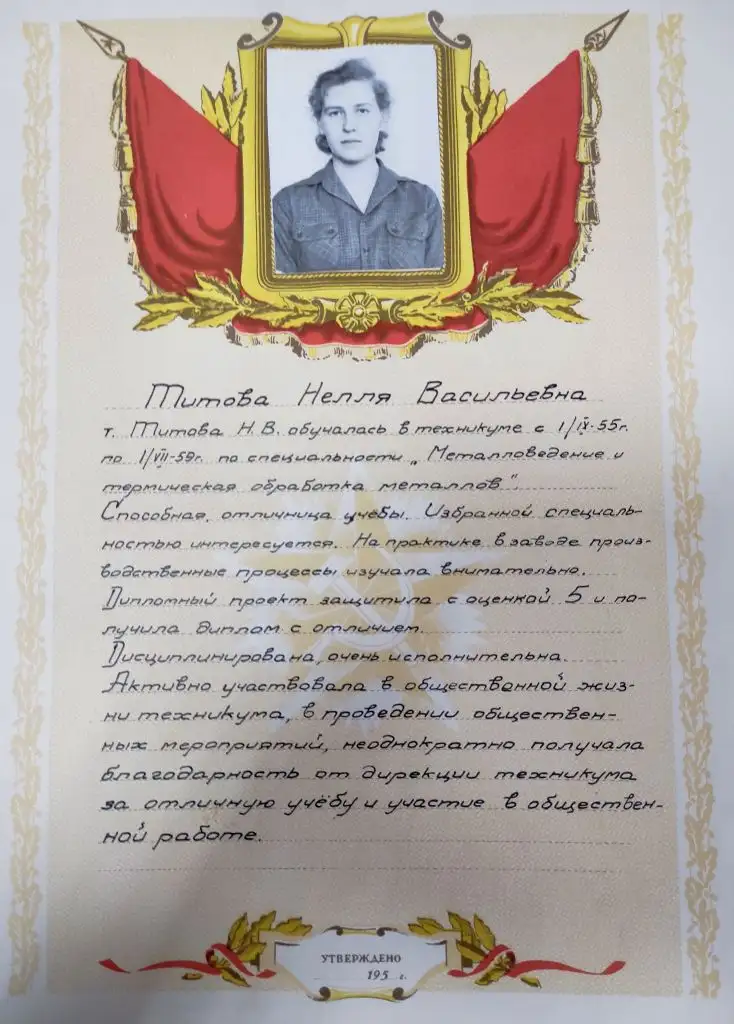 Титова Нелля Васильевна
т. Титова Н.В. обучалась в техникуме с 1/IX-55г.
по 1/VII-59г. по специальности „Металловедение и
термическая обработка металлов".
Способная, отличница учёбы. Избранной специаль-
ностью интересуется. На практике в заводе произ-
водственные процессы изучала внимательно.
Дипломный проект защитила с оценкой 5 и по-
лучила диплом с отличием.
Дисциплинирована, очень исполнительна.
Активно участвовала в общественной жиз-
ни техникума, в проведении обществен-
ных мероприятий, неоднократно получала
благодарность от дирекции техникума
за отличную учёбу и участие в обществен-
ной работе.
УТВЕРЖДЕНО
195 г.